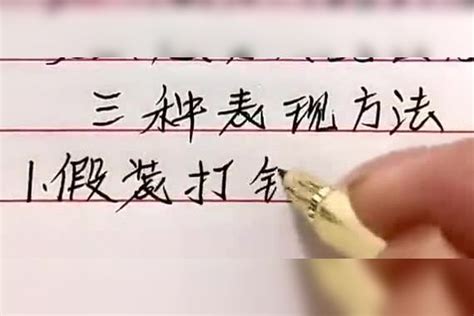 三种表现方法
1.假装打